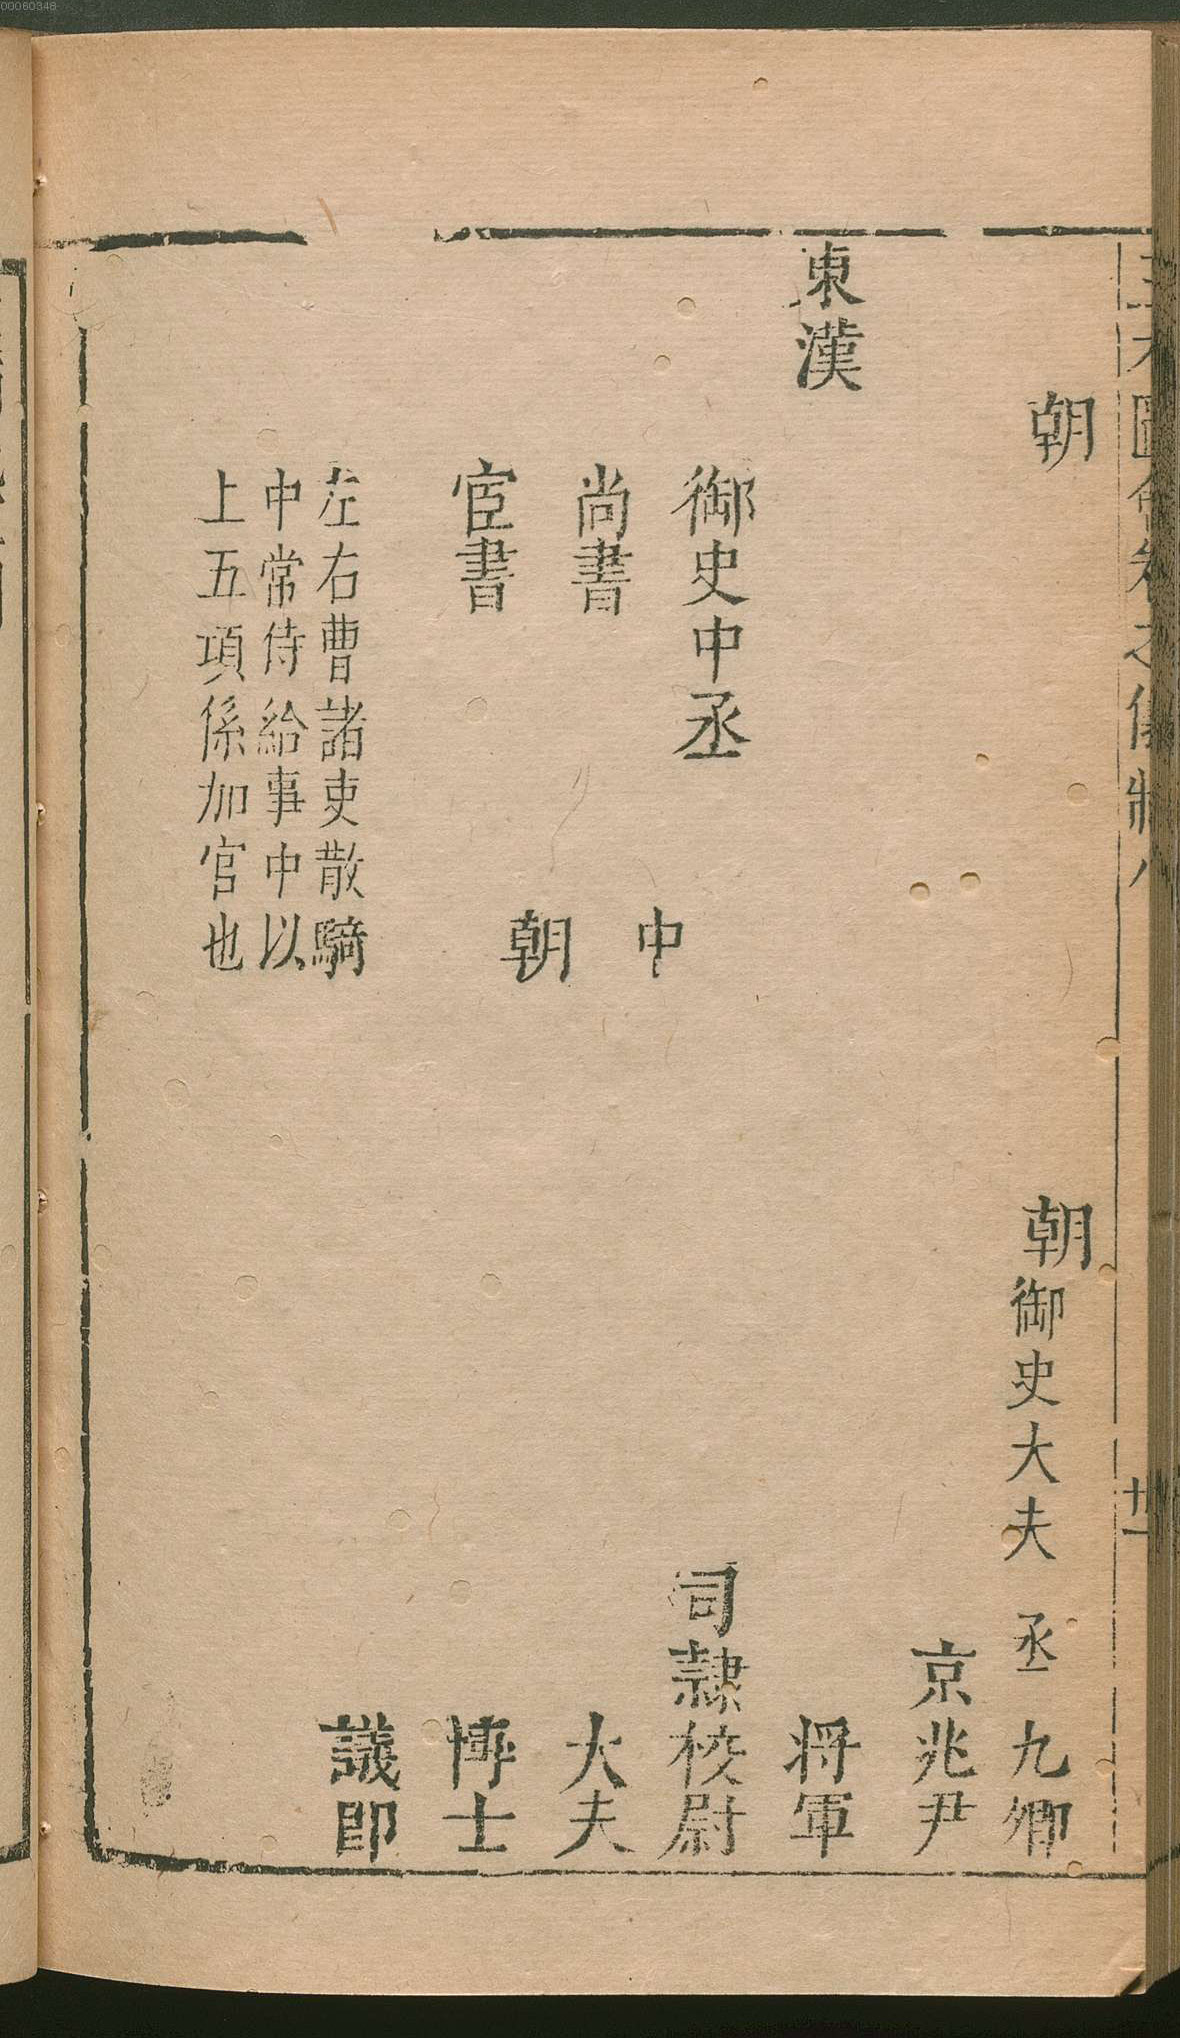 00060348
三才圖會卷之儀制八
廿一
朝
朝
御史大夫
丞
九卿
京兆尹
東漢
將軍
御史中丞
中
司隸校尉
尚書
朝
大夫
宦書
博士
左右曹諸吏散騎
中常侍給事中以
上五項係加官也
議郎